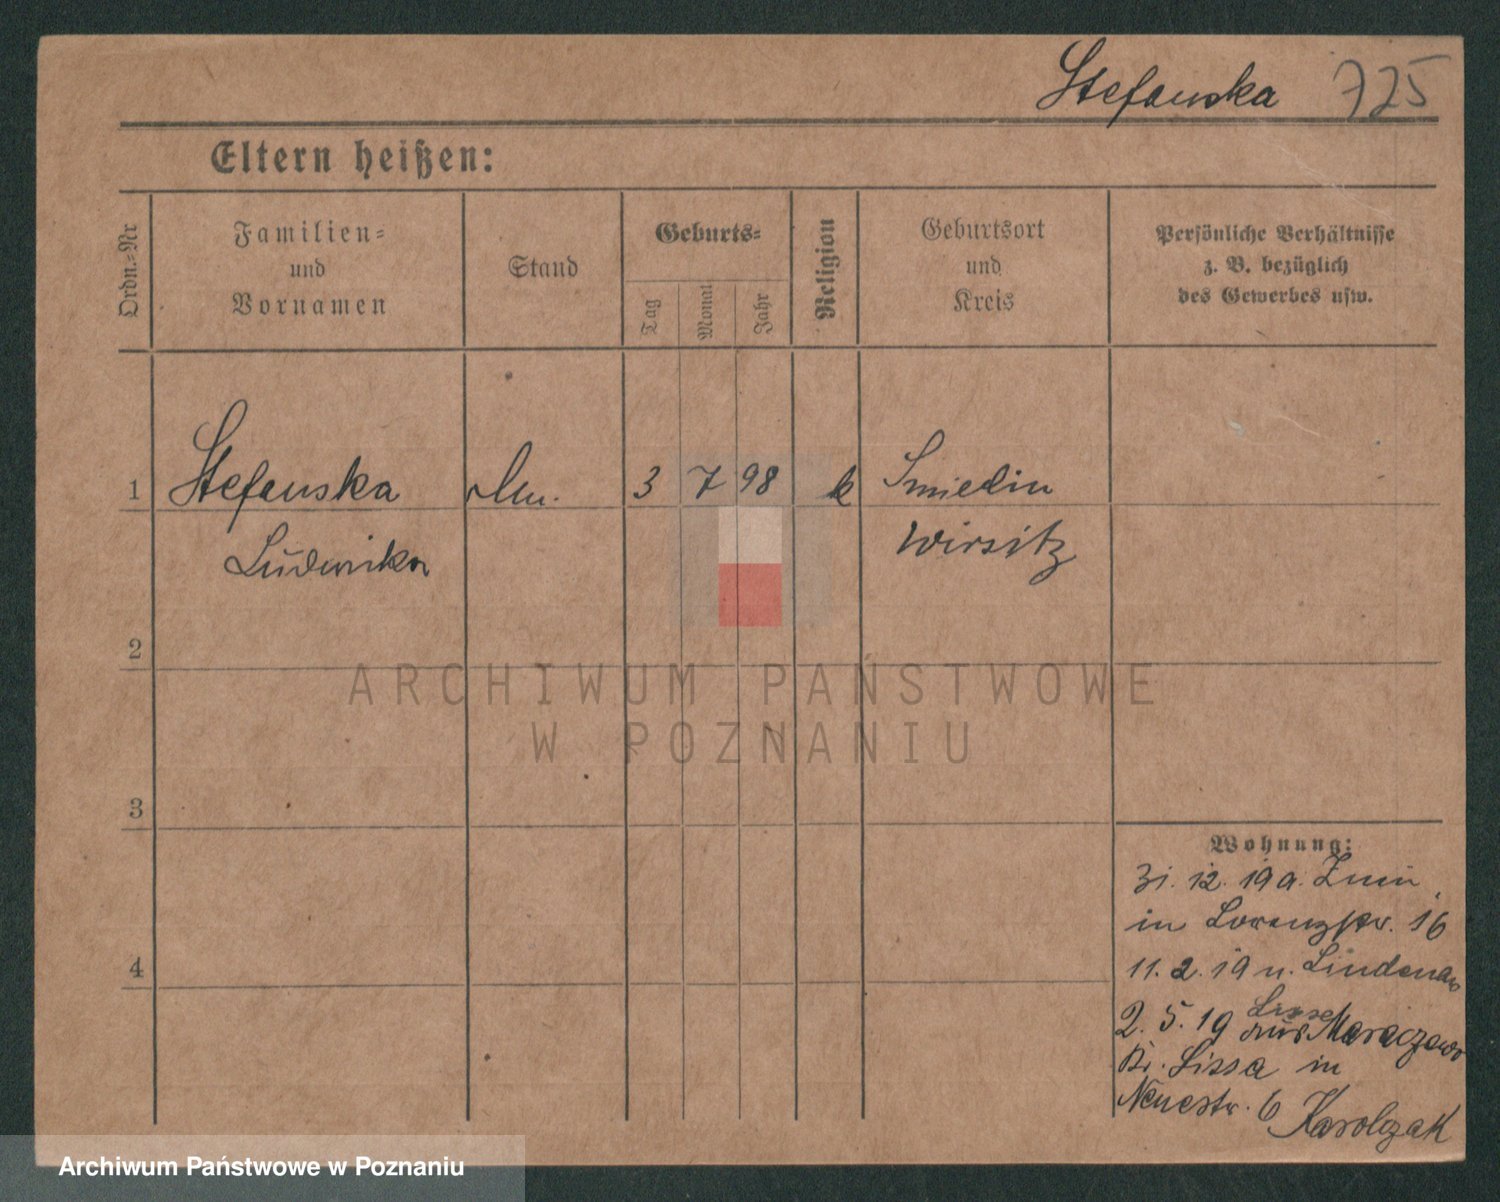 Stefanska 725
Eltern heißen:
Ordn.-Nr
Familien-
und
Vornamen
Stand
Geburts-
Tag
Monat
Jahr
Religion
Geburtsort
und
Kreis
Persönliche Verhältnisse
z. B. bezüglich
des Gewerbes usw.
1 Stefanska 3 7 98 k Smielin
Ludwika Wirsitz
2
3
4
ARCHIWUM PAŃSTWOWE
W POZNANIU
Wohnung:
31. 12. 19 a. Znin
in Lorenzstr. 16
11. 2. 19 n. Lindenau
Lissa
2. 5. 19 aus
Kr. Lissa in
Neuestr. 6 Karolczak
Archiwum Państwowe w Poznaniu